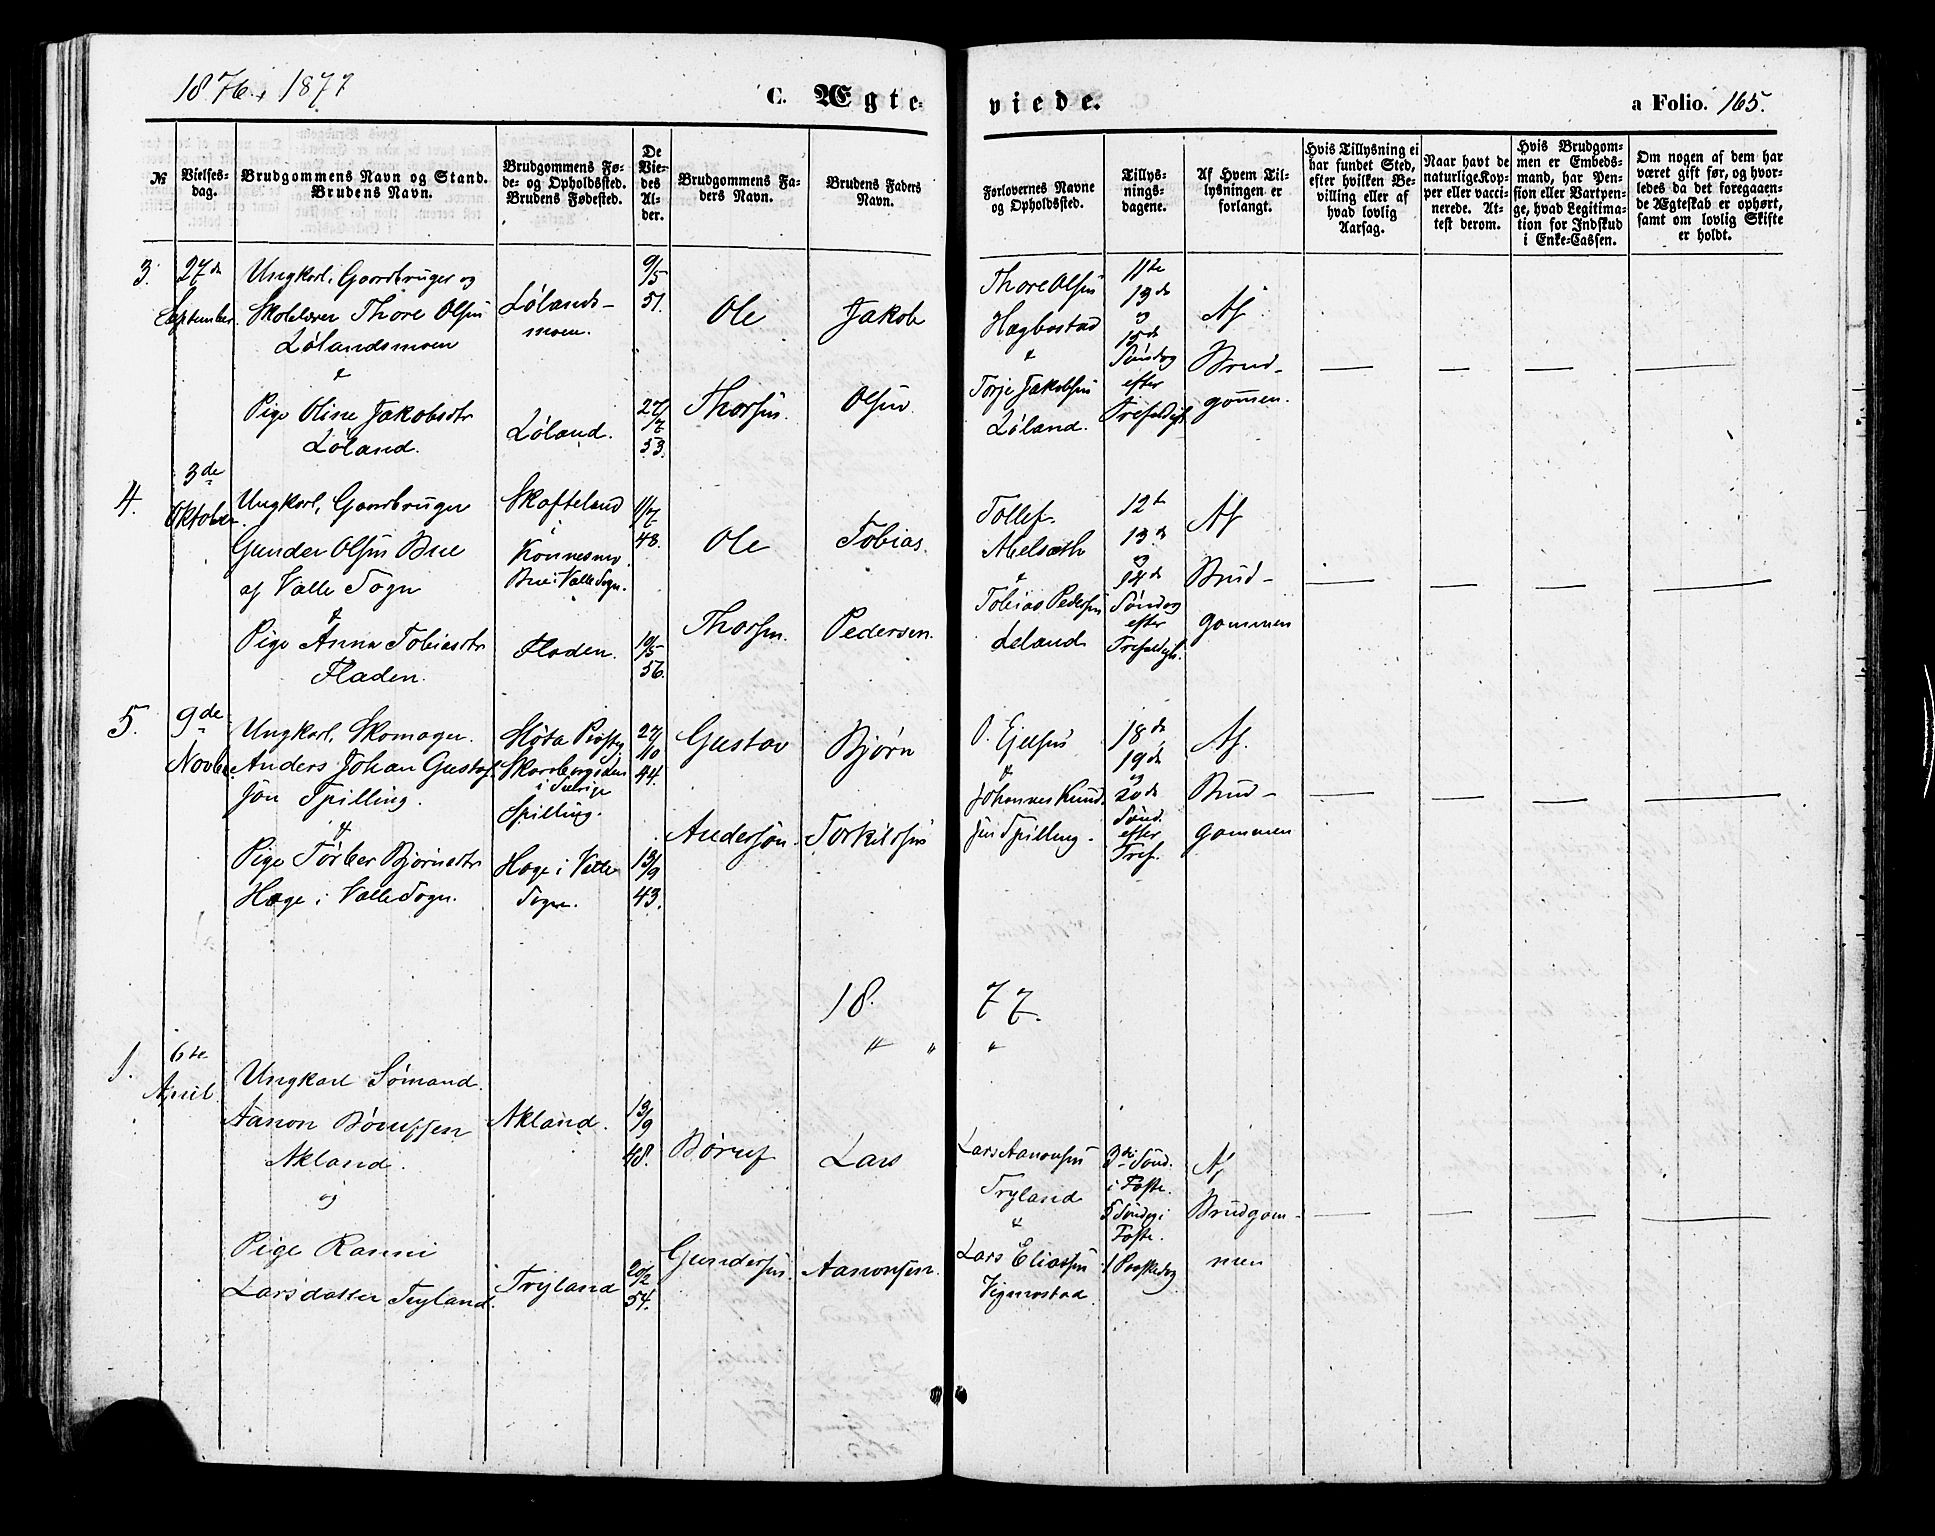 1876, 1877
C. Ægteviede.
a Folio. 165.
№
Vielsesdag.
Brudgommens Navn og Stand.
Brudens Navn.
Brudgommens Fø-
de- og Opholdssted.
Brudens Fødested.
De
Vie-
des
Al-
der.
Brudgommens Fa-
ders Navn.
Brudens Faders
Navn.
Forlovernes Navne
og Opholdssted.
Tillys-
nings-
dagene.
Af Hvem Til-
lysningen er
forlangt.
Hvis Tillysning ei
har fundet Sted,
efter hvilken Be-
villing eller af
hvad lovlig
Aarsag.
Naar havt de
naturlige Kop-
per eller vacci-
nerede. At-
test derom.
Hvis Brudgom-
men er Embeds-
mand, har Pen-
sion eller Vartpen-
ge, hvad Legitima-
tion for Indskud
i Enke-Cassen.
Om nogen af dem har
været gift før, og hvor-
ledes da det foregaaen-
de Ægteskab er ophørt,
samt om lovlig Skifte
er holdt.
3.
27de
September.
Ungkarl, Gaardbruger og
Skolelærer Thore Olsen
Lølandsmoen
&
Pige Oline Jakobsdtr
Løland.
Lølands-
moen.
Løland.
9/5
51.
27/7
53.
Ole
Thorsen.
Jakob
Olsen.
Thore Olsen
Hægbostad
&
Torje Jakobsen
Løland.
11te
13de
og
15de
Søndag
efter
Trefoldigh.
Af
Brud-
gommen.
4.
3de
Oktober
Ungkarl, Gaardbruger
Gunder Olsen Bue
af Valle Sogn
&
Pige Anna Tobiasdtr
Fladen.
Skofteland
i
Konnesmo.
Bue i Valle Sogn.
Fladen.
11/7
48.
10/5
56.
Ole
Thorsen.
Tobias
Pedersen.
Tollef
Abelsæth
&
Tobias Pedersen
Leland
12te
13de
og
14de
Søndag
efter
Trefoldigh.
Af
Brud-
gommen
5.
9de
Novbr.
Ungkarl, Skomager.
Anders Johan Gustaf-
son Spilling.
&
Pige Tørber Bjørnsdtr
Høge i Valle Sogn.
i Sverige
Spilling.
Høge i Valle
Sogn.
27/10
44.
13/9
43.
Gustav
Anderson.
Bjørn
Torkilsen
O. Ejelsen
&
Johannes Knud-
sen Spilling.
18de
19de
og
20de
Sønd.
efter
Tref.
Af
Brud-
gommen
1877.
1.
6te
April.
Ungkarl Sømand
Aanon Børufsen
Akland.
og
Pige Ranni
Larsdatter Tryland.
Akland.
Tryland
13/9
48.
20/2
54.
Børuf
Gundersen.
Lars
Aanonsen.
Lars Aanonsen
Tryland
&
Lars Eliassen
Vigmostad.
3die Sønd.
i Faste.
5 Søndag i
Faste.
1 Paaskedag
Af
Brudgom-
men